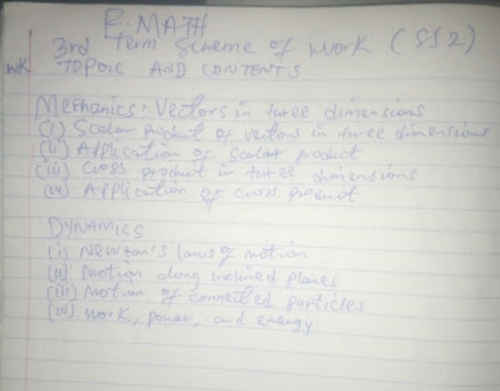 F. MATH
3rd Term Scheme of work (SS2)
WK TOPOIC AND CONTENTS
Mechanics: Vectors in three dimensions
(i) Scalar product of vectors in three dimensions
(ii) Application of scalar product
(iii) Cross product in three dimensions
(iv) Application of cross product
DYNAMICS
(i) Newton's laws of motion
(ii) Motion along inclined planes
(iii) Motion of connected particles
(iv) work, power, and energy